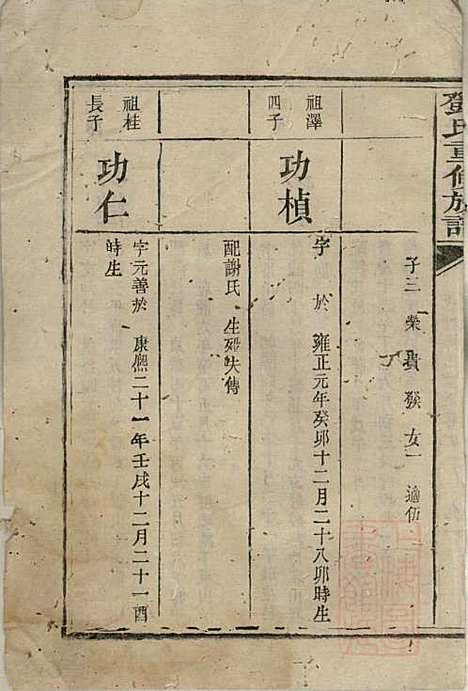 鄧氏重修族譜
子三 榮 貴 猴 女一 適伍
祖澤
四子
功楨
字 於 雍正元年癸卯十二月二十八卯時生
配謝氏 生歿失傳
祖桂
長子
功仁
字元善於 康熙二十一年壬戌十二月二十一酉
時生